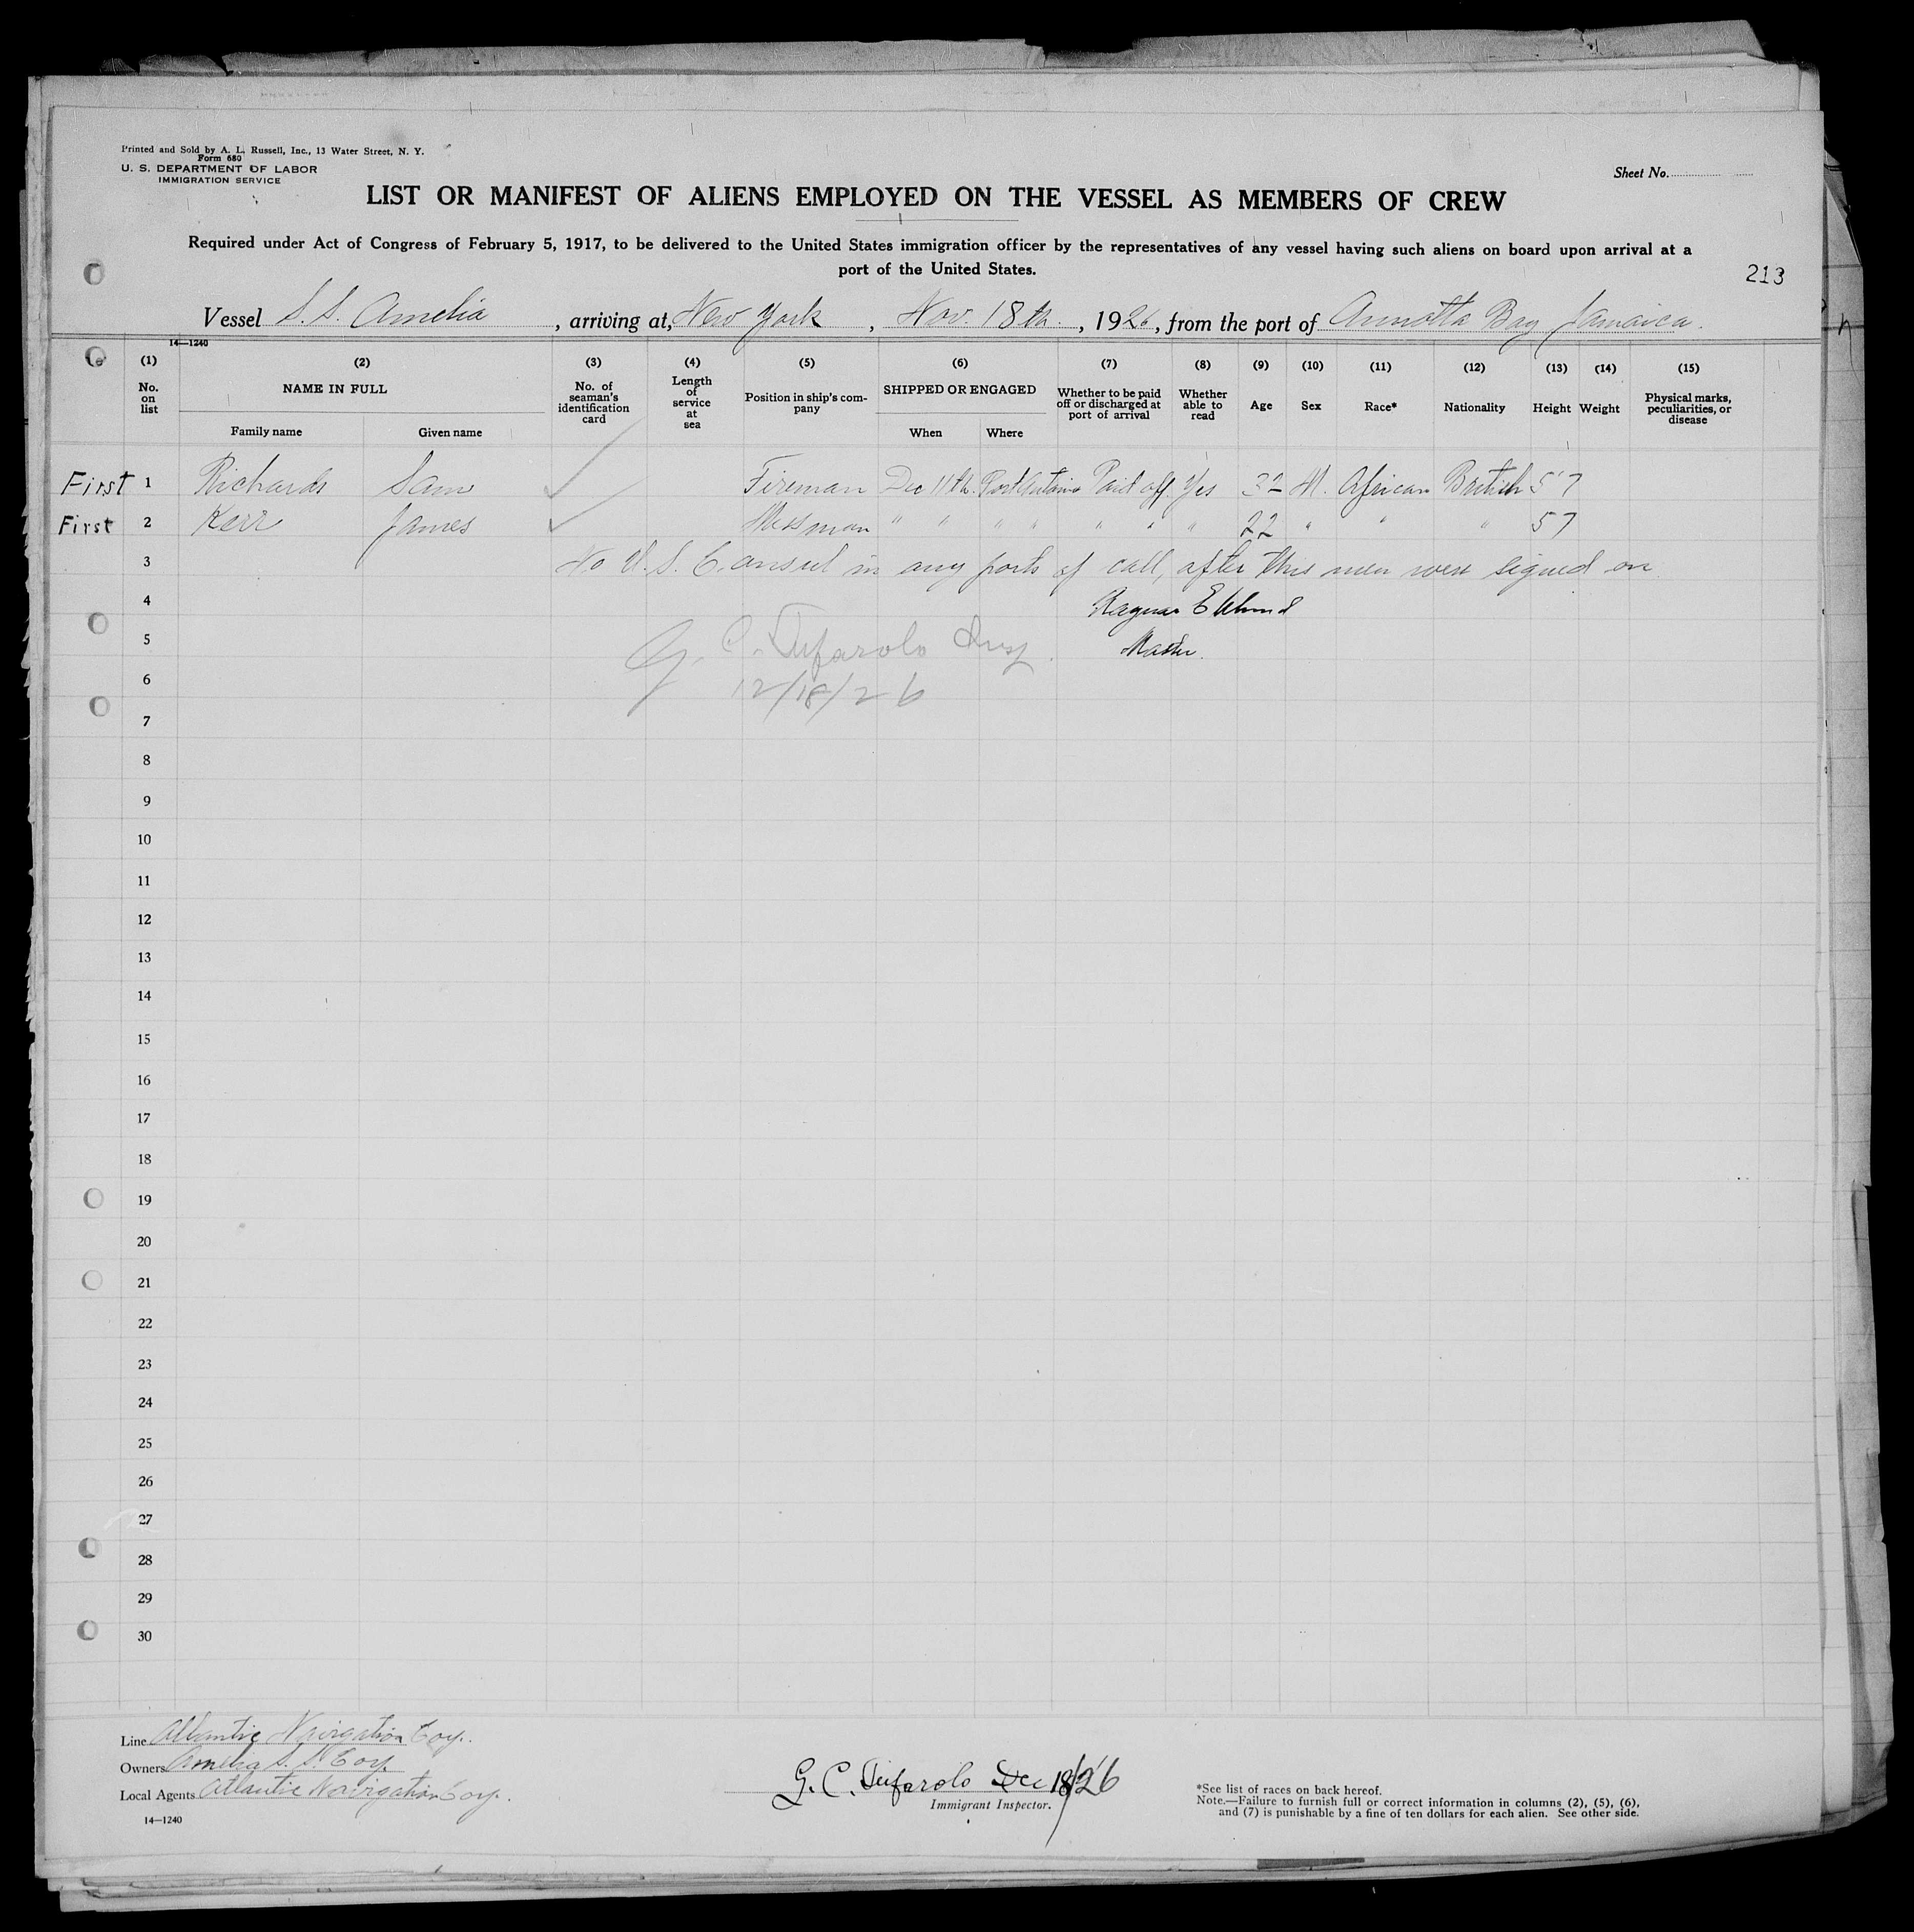 Printed and Sold by A. L. Russell, Inc., 13 Water Street, N. Y.
Form 680
U. S. DEPARTMENT OF LABOR
IMMIGRATION SERVICE
Sheet No.
LIST OR MANIFEST OF ALIENS EMPLOYED ON THE VESSEL AS MEMBERS OF CREW
Required under Act of Congress of February 5, 1917, to be delivered to the United States immigration officer by the representatives of any vessel having such aliens on board upon arrival at a
port of the United States.
213
Vessel S.S. Amelia, arriving at, New York, Nov. 18th., 1926, from the port of Annotta Bay Jamaica.
14—1240
(1) (2) (3) (4) (5) (6) (7) (8) (9) (10) (11) (12) (13) (14) (15)
No. on list NAME IN FULL Family name Given name No. of seaman's identification card Length of service at sea Position in ship's company SHIPPED OR ENGAGED When Where Whether to be paid off or discharged at port of arrival Whether able to read Age Sex Race* Nationality Height Weight Physical marks, peculiarities, or disease
First 1 Richards Sam Fireman Dec 11th. Port Antonio Paid off. Yes 32 M. African British 5'7
First 2 Kerr James Messman " " " " " " " 22 " " " 57
3 No U.S. Consul in any ports of call, after this men were signed on
4 Ragnar Eklund
5 Master.
G. C. Insp.
6 12/18/26
7
8
9
10
11
12
13
14
15
16
17
18
19
20
21
22
23
24
25
26
27
28
29
30
Line Atlantic Navigation Corp.
Owners Amelia S.S. Corp.
Local Agents Atlantic Navigation Corp.
14—1240
G. C. Dec 18/26
Immigrant Inspector.
*See list of races on back hereof.
Note.—Failure to furnish full or correct information in columns (2), (5), (6),
and (7) is punishable by a fine of ten dollars for each alien. See other side.